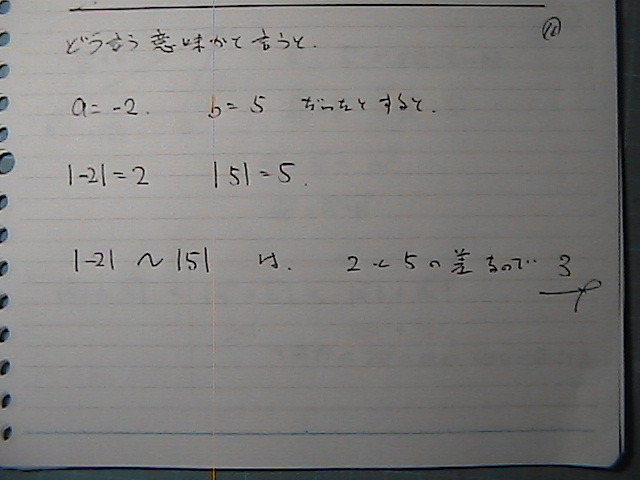 ⑫
どう言う意味かて言うと.
a=-2. b=5 だったとすると.
|-2|=2 |5|=5.
|-2| ~ |5| は. 2と5の差なので 3